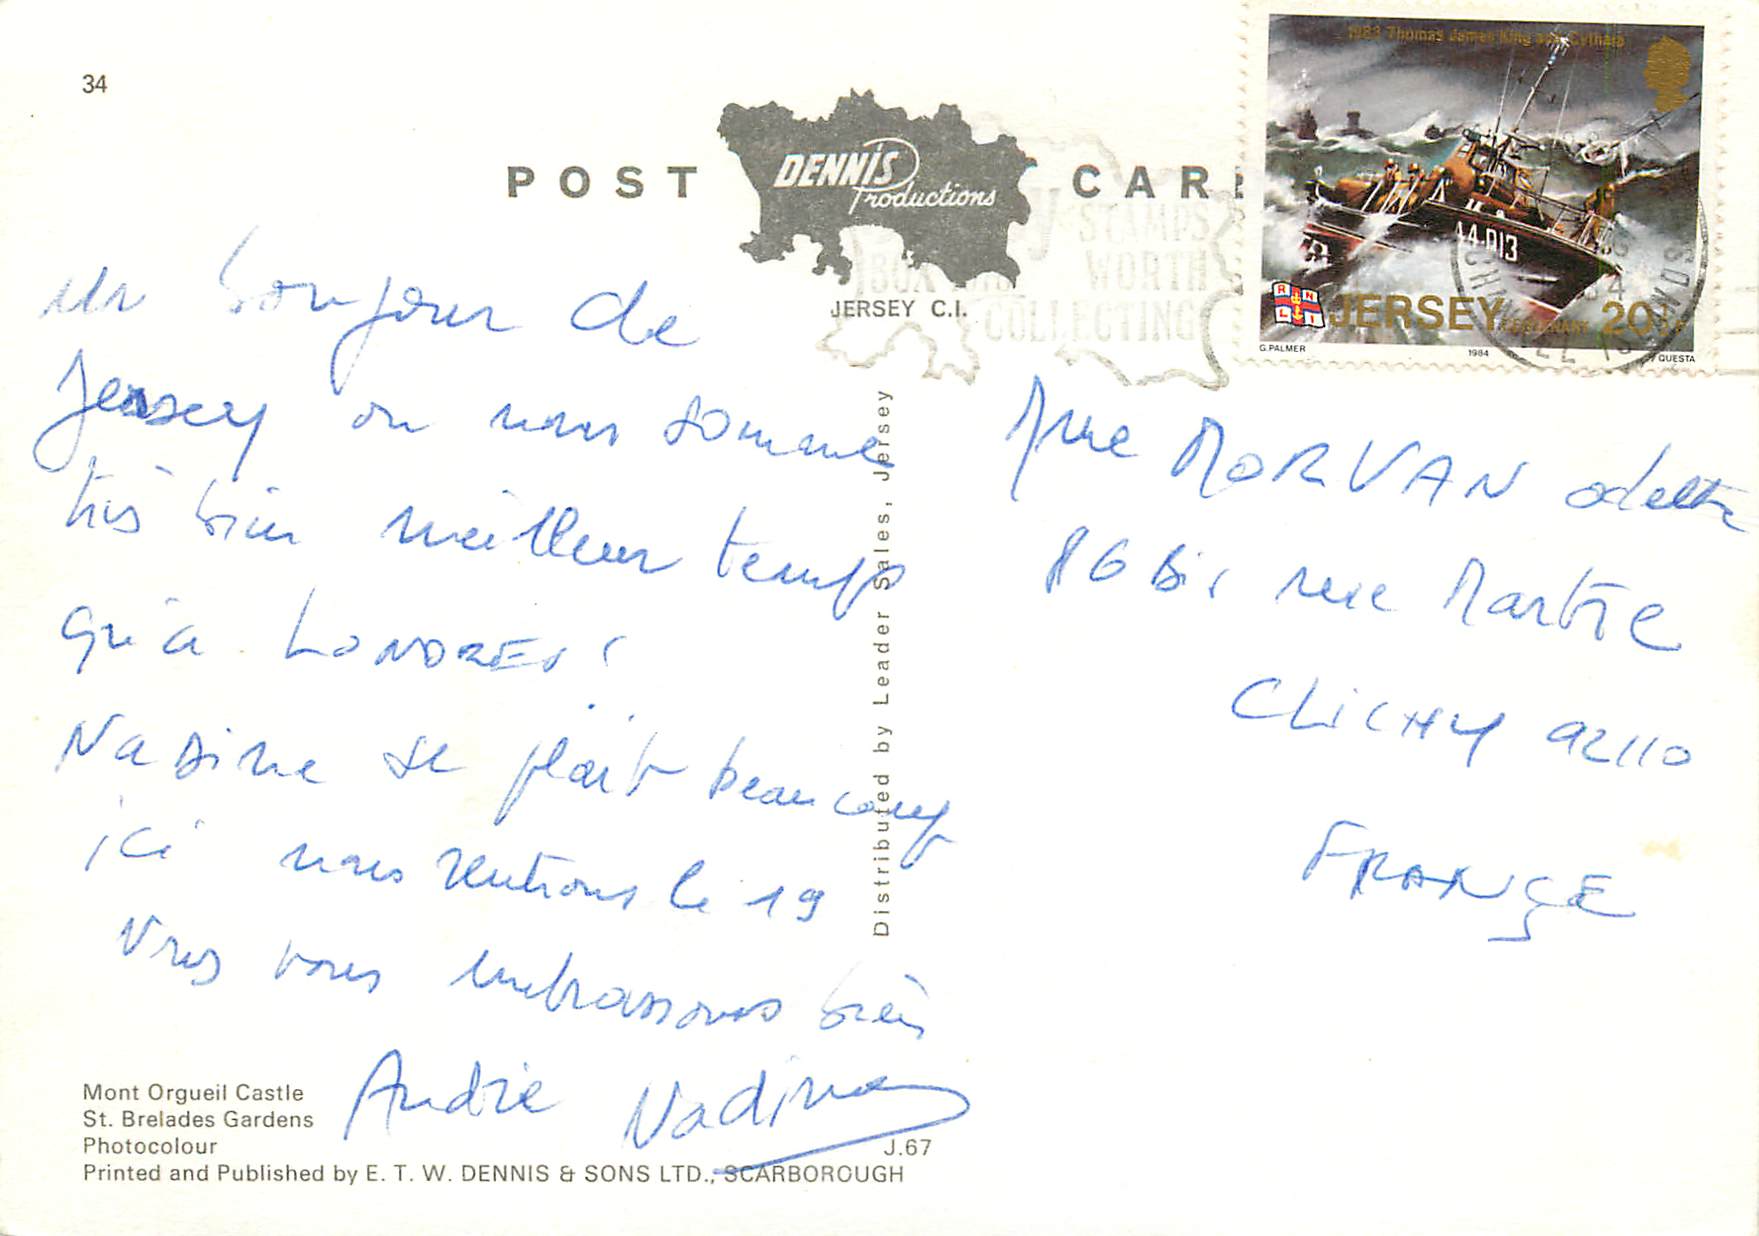 34
POST CARD
DENNIS
Productions
JERSEY C.I.
STAMPS
WORTH
COLLECTING
1983 Thomas James King and Cythara
44-013
RNLI
JERSEY
20
G.PALMER
1984
QUESTA
un bonjour de
Jersey ou nous sommes
très bien meilleur temps
qu'à LONDRES !
Nadine se plait beaucoup
ici nous rentrons le 19
Nous vous embrassons bien
André Nadine
Mme MORVAN odette
86 Bis rue Martre
CLICHY 92110
FRANCE
Distributed by Leader Sales, Jersey
Mont Orgueil Castle
St. Brelades Gardens
Photocolour
J.67
Printed and Published by E. T. W. DENNIS & SONS LTD., SCARBOROUGH